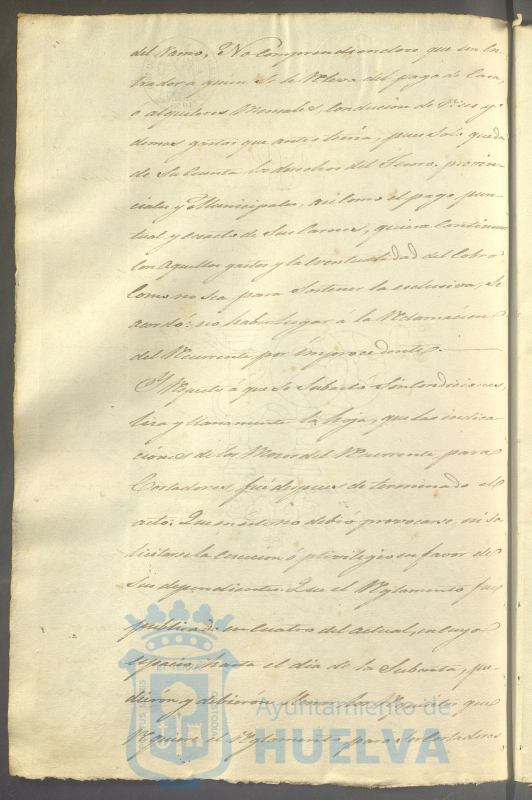 del Ramo; No comprendiendose que un cor
tador a quien se le releva del pago de Casa,
o alquileres mensales, conducion de y
demas gastos que antes tenia, pues solo queda
de su cuenta los derechos del Tesoro, provin
ciales y Municipales, asi como el pago pun
tual y exacto de sus carnes, quiera continuar
con aquellos gastos y la eventualidad del cobro
como no sea para sostener la esclusiva, se
acordó: no haber lugar á la reclamacion
del recurrente por improcedente.
Y respecto á que se subastó sin condiciones,
lisa y llanamente la hoja, que las indica
ciones de los mozos del recurrente para
Cortadores, fué despues de terminado el
acto: Que en este no debió provocarse, ni so
licitarse la escecion ó privilegio en favor de
sus dependientes. Que el Reglamento fue
publicado en cuatro del actual, en cuyo
espacio, hasta el dia de la Subasta, pu
dieron y debieron llenar los requisitos que
requiere el Reglamento para ser Cortadores
Ayuntamiento de
HUELVA